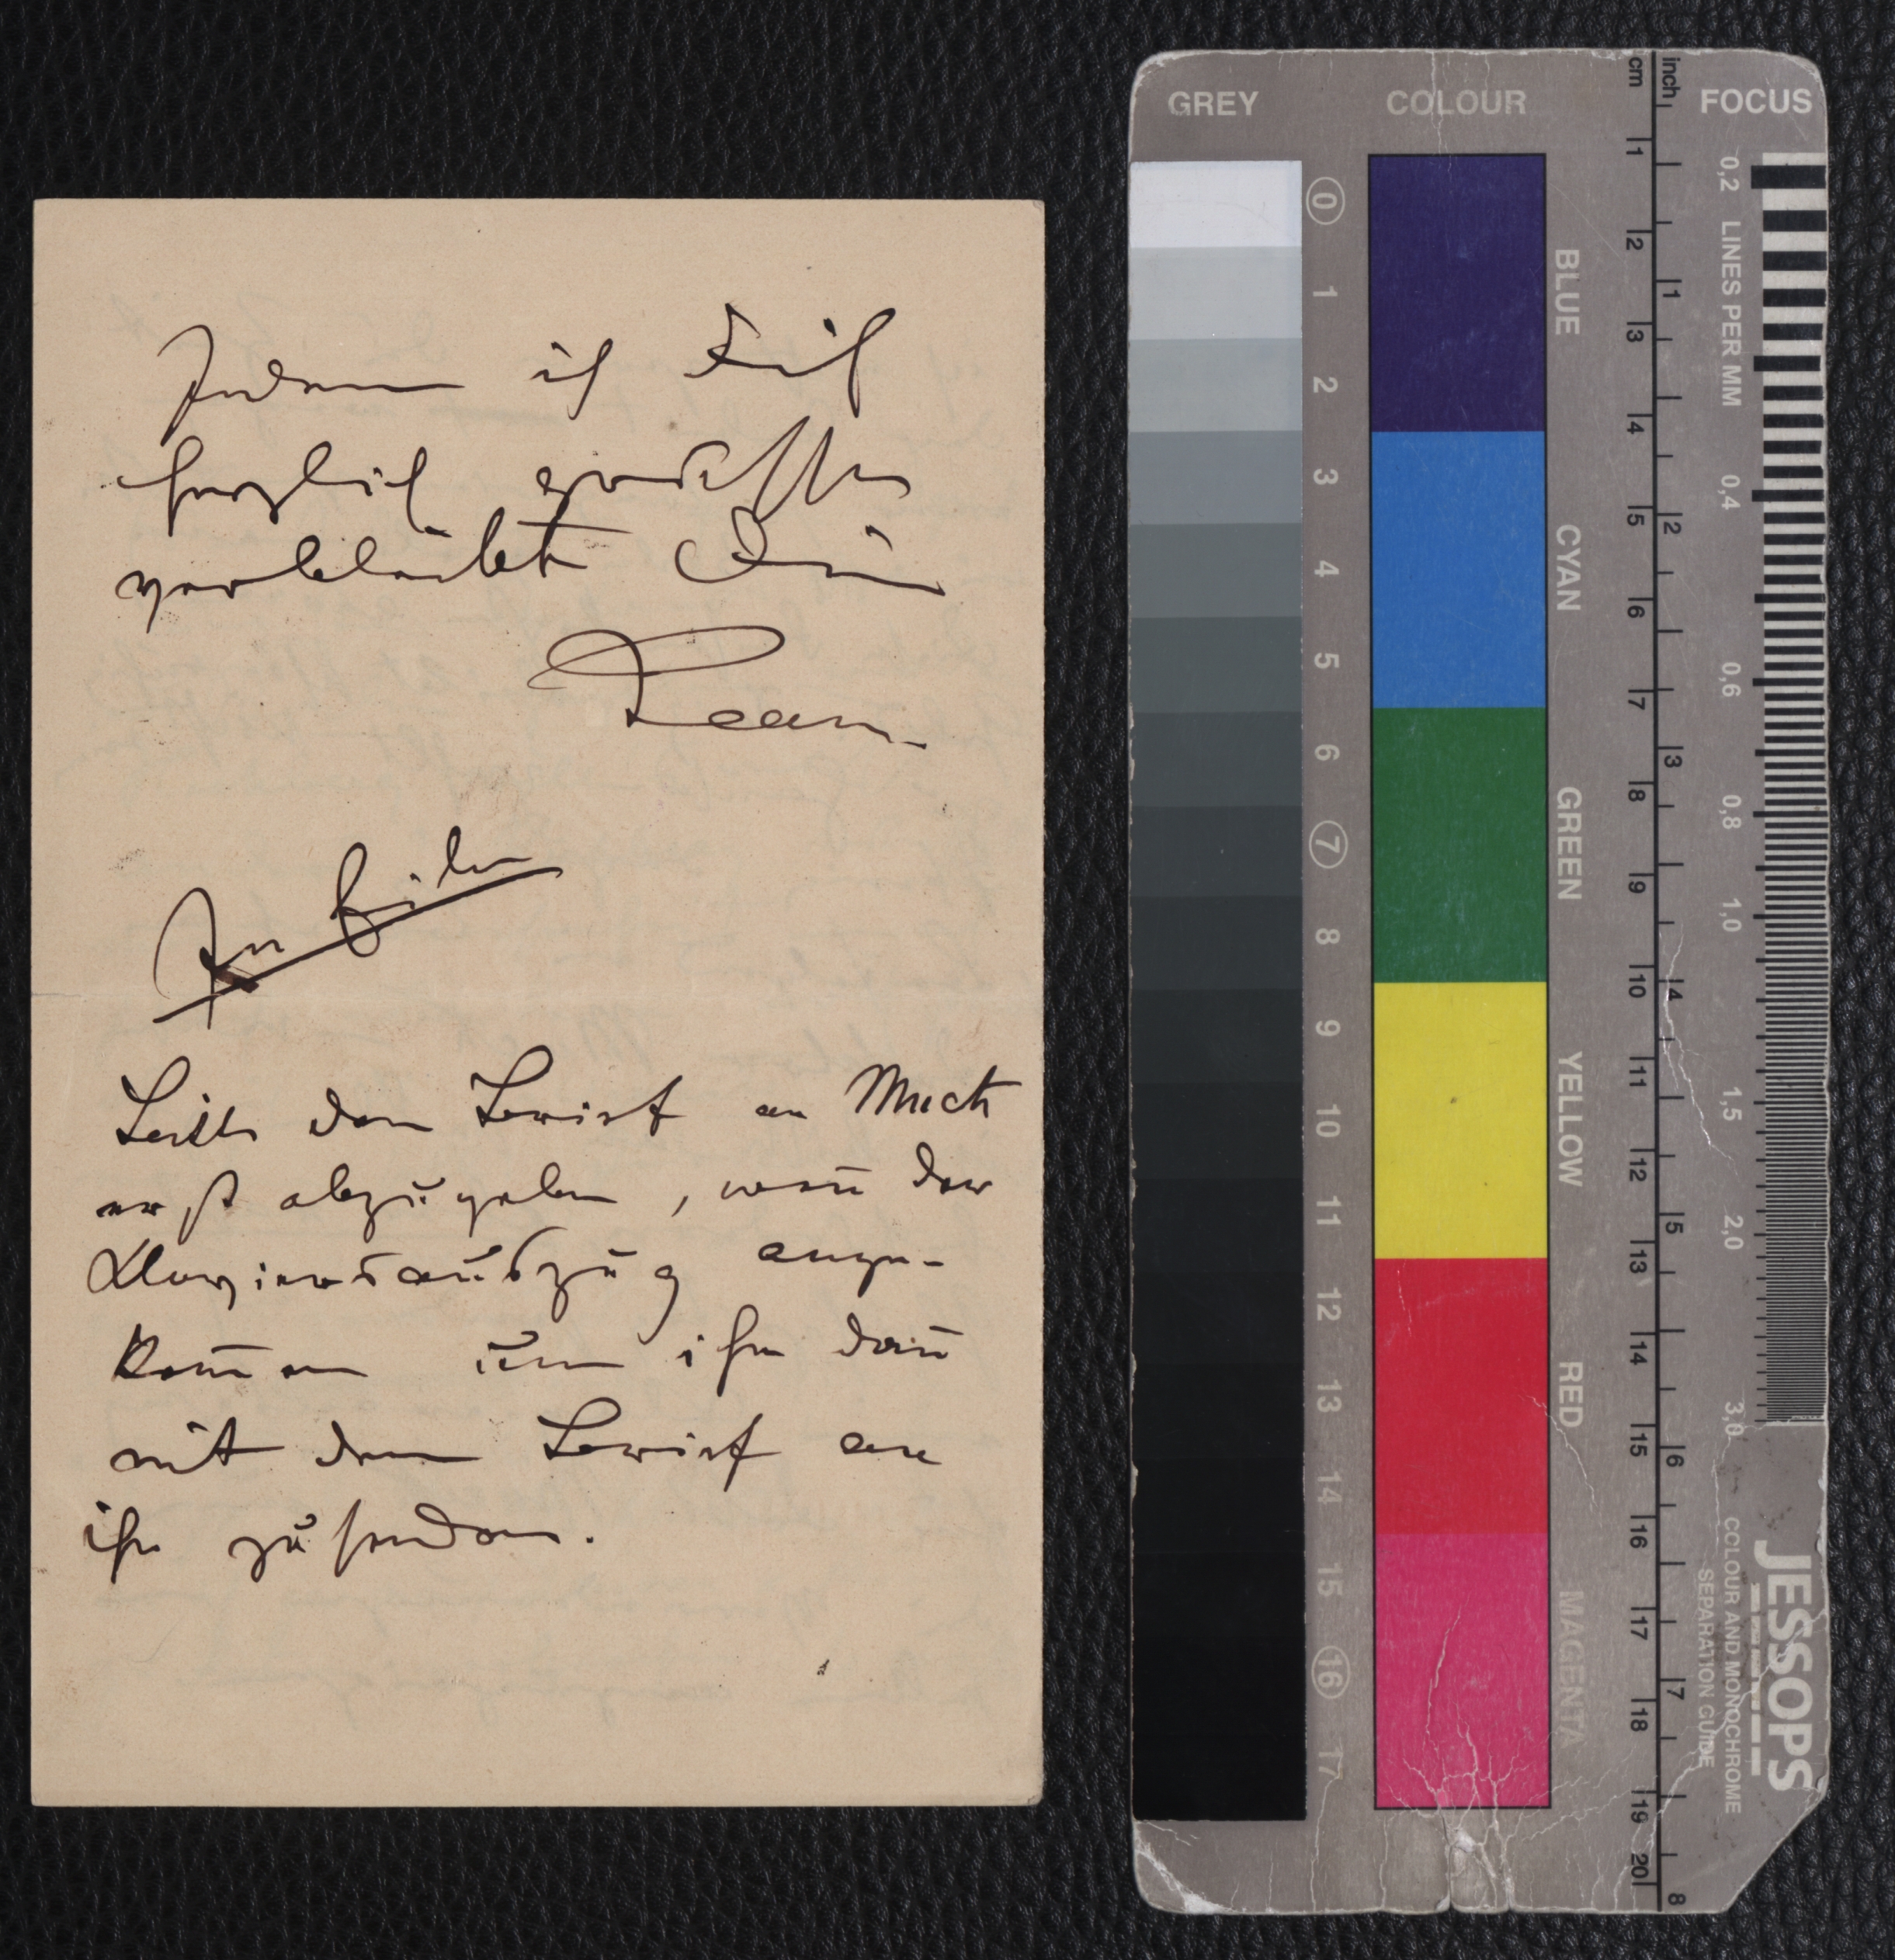 Indem ich Dich
herzlich grüsse
verbleibt Dein
Leam.
In Eile
Bitte den Brief an Much
erst abzugeben, weñ der
Klavierauszug ange-
kom̄en um ihn dañ
mit dem Brief an
ihn zu senden.
GREY
COLOUR
cm
inch
FOCUS
0
1
2
3
4
5
6
7
8
9
10
11
12
13
14
15
16
17
BLUE
CYAN
GREEN
YELLOW
RED
MAGENTA
1
2
3
4
5
6
7
8
9
10
11
12
13
14
15
16
17
18
19
20
1
2
3
4
5
6
7
8
0,2 LINES PER MM
0,4
0,6
0,8
1,0
1,5
2,0
3,0
JESSOPS
COLOUR AND MONOCHROME
SEPARATION GUIDE